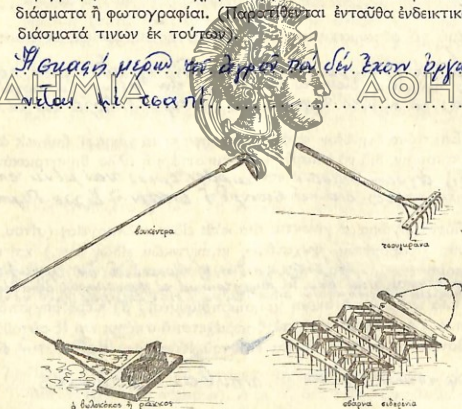 διάσματα ἢ φωτογραφίαι. (Παρατίθενται ἐνταῦθα ἐνδεικτικ
διάσματά τινων ἐκ τούτων).
Ἡ σκαφή μερῶν τοῦ ἀγροῦ που δέν ἔχουν ὀργω
νεται μὲ τσαπί
ΔΗΜΙΑ ΑΘΗ
βουκέντρα
τσουγκράνα
ὁ βωλοκόπος ἢ ράκκος
σβάρνα σιδερένια